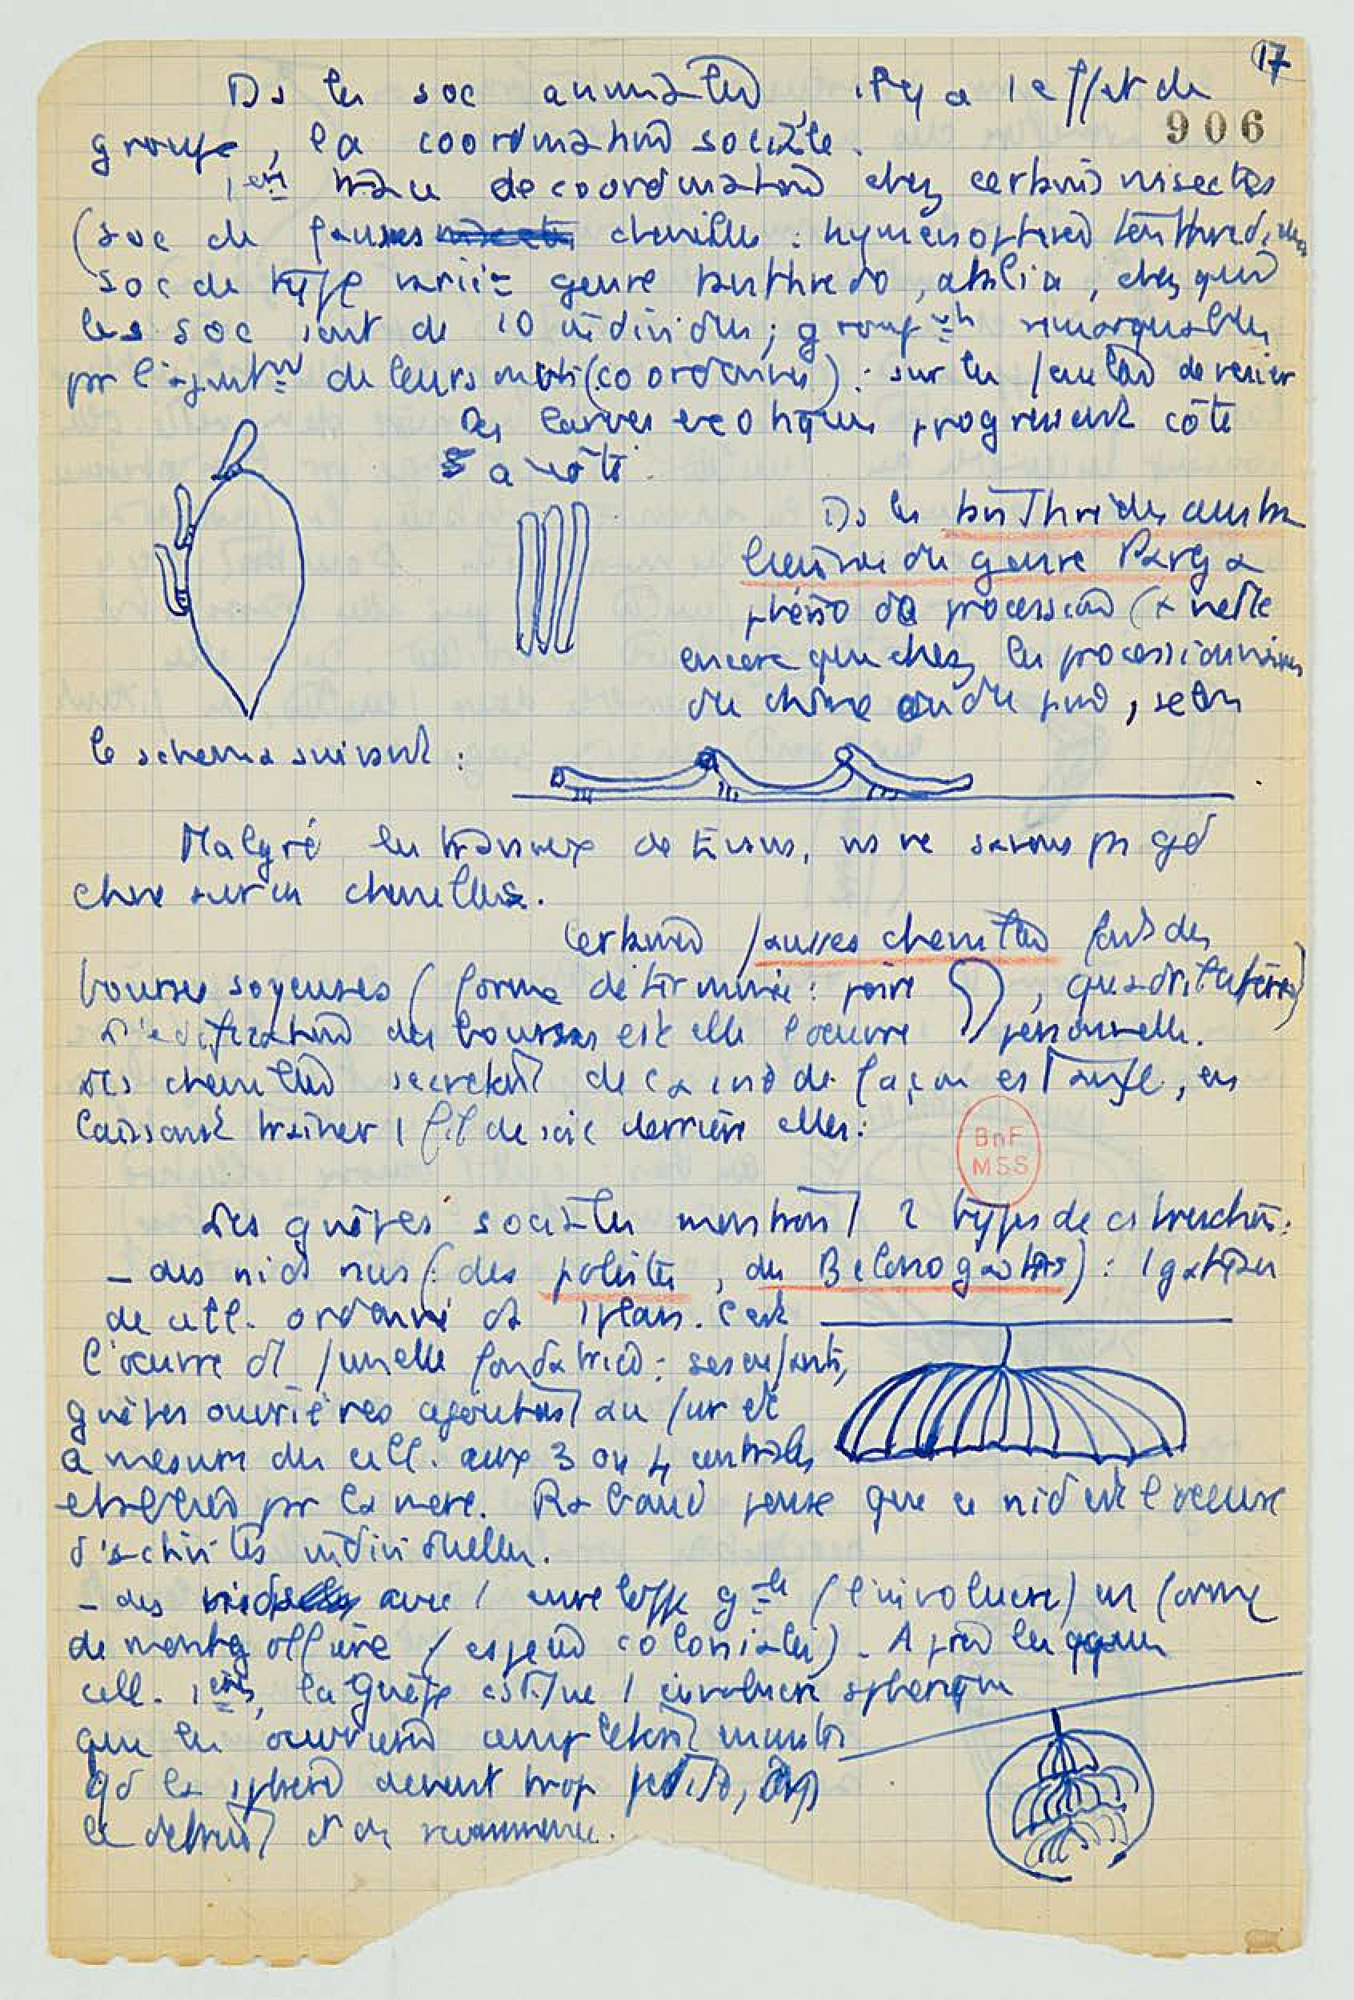 17
906
Ds les soc animales, il y a l'effet de
groupe, la coordination sociale.
1ere trace de coordination chez certains insectes
(soc de fausses chenilles : hymenopteres tenthredides
soc de type varié = genre tenthredo, chez qui
les soc sont de 10 individus ; groupmt remarquables
pr l'ajustmt de leurs mvts (coordonnés) : sur les feuilles de rosier
les larves exotiques progressent côte
a côte.
Ds les tenthredes austra
liennes du genre Perga
phéno de procession (+ nette
encore que chez les processionnaires
du chêne ou du pin, selon
le schema suivant :
Malgré les travaux de Evans, ns ne savons ps gd
chose sur ces chenilles.
Certaines fausses chenilles font des
bourses soyeuses (forme déterminée : poire , quadrilatère)
L'edification des bourses est elle l'oeuvre personnelle.
Les chenilles secretent de la soie de façon , en
laissant trainer 1 fil de soie derriere elles :
BnF
MSS
Les guêpes sociales montrent 2 types de constructions :
- des nids nus (des polistes, des Belonogasters) : 1 gateau
de cell. ordonné ds 1 plan. C'est
l'oeuvre d'1 femelle fondatrice : ses enfants,
guêpes ouvrières ajoutent au fur et
a mesure des cell. aux 3 ou 4 centrales
etablies pr la mere. Rabaud pense que ce nid est l'oeuvre
d'activités individuelles.
- des nids avec 1 enveloppe gle (l'involucre) en forme
de montgolfière (especes coloniales). Apres les qques
cell. 1eres, la guêpe 1 involucre spherique
que les ouvrieres completent ensuite
qd la sphere devient trop petite, on
la detruit et on recommence.